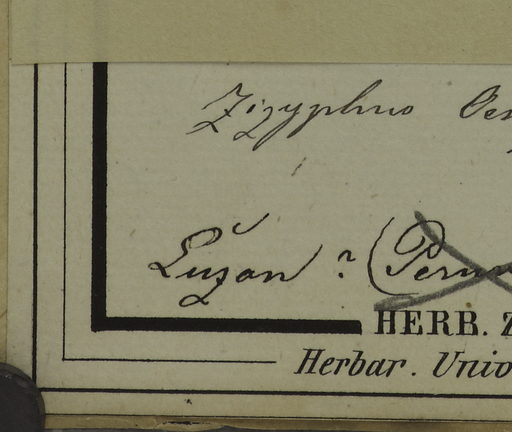 Zizyphus Oen
Luzon ? (Peru
HERB. Z
Herbar. Unio